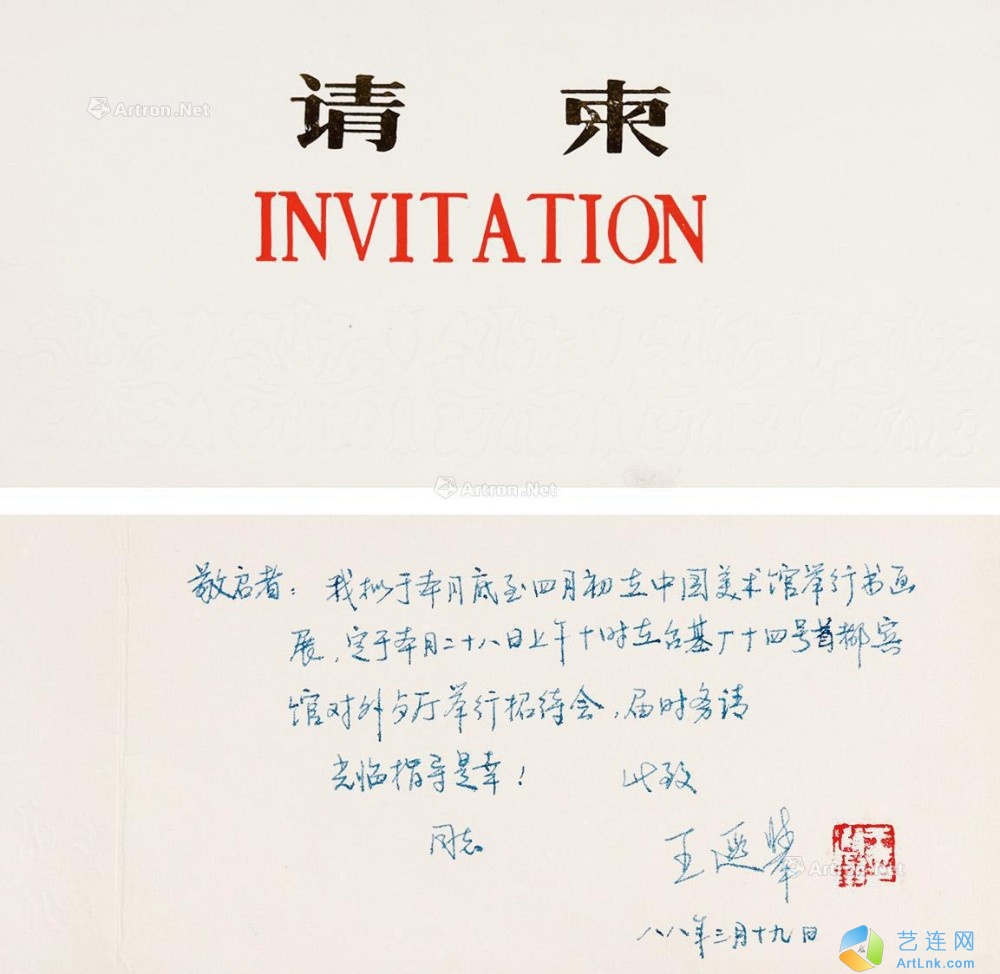 请柬
INVITATION
Artron.Net
Artron.Net
敬启者：我拟于本月底至四月初在中国美术馆举行书画
展，定于本月二十八日上午十时在台基厂十四号首都宾
馆对外餐厅举行招待会，届时务请
光临指导是幸！ 此致
同志
王遐举
Artron.Net
八八年三月十九日
艺连网
ArtLnk.com